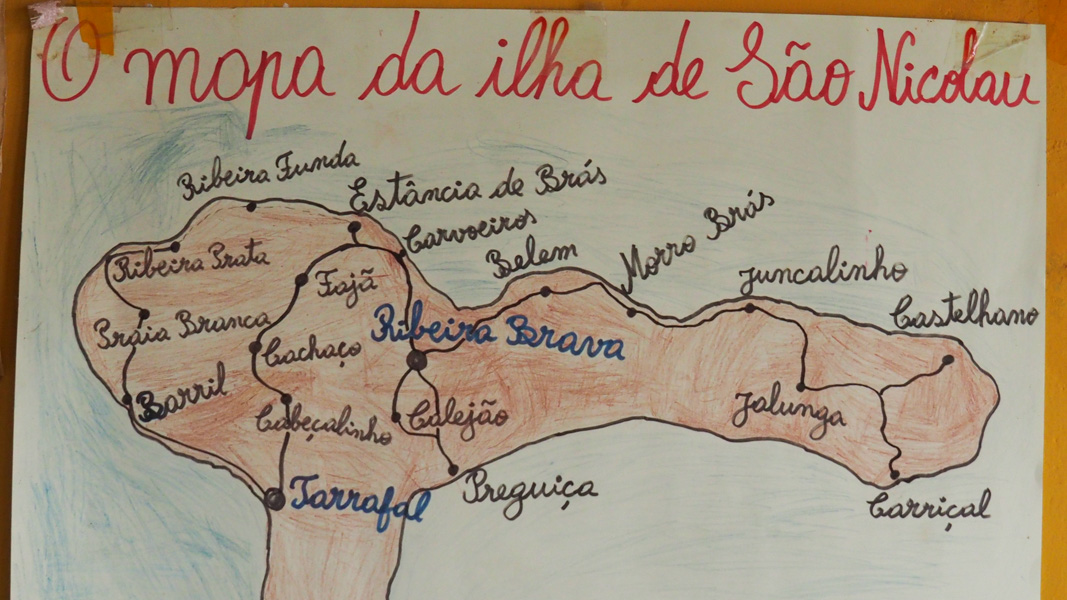 O mapa da ilha de São Nicolau
Ribeira Funda
Estância de Brás
Carvoeiros
Belem
Morro Brás
Juncalinho
Castelhano
Ribeira Prata
Fajã
Praia Branca
Cachaço
Ribeira Brava
Barril
Cabeçalinho
Calejão
Jalunga
Tarrafal
Preguiça
Carriçal